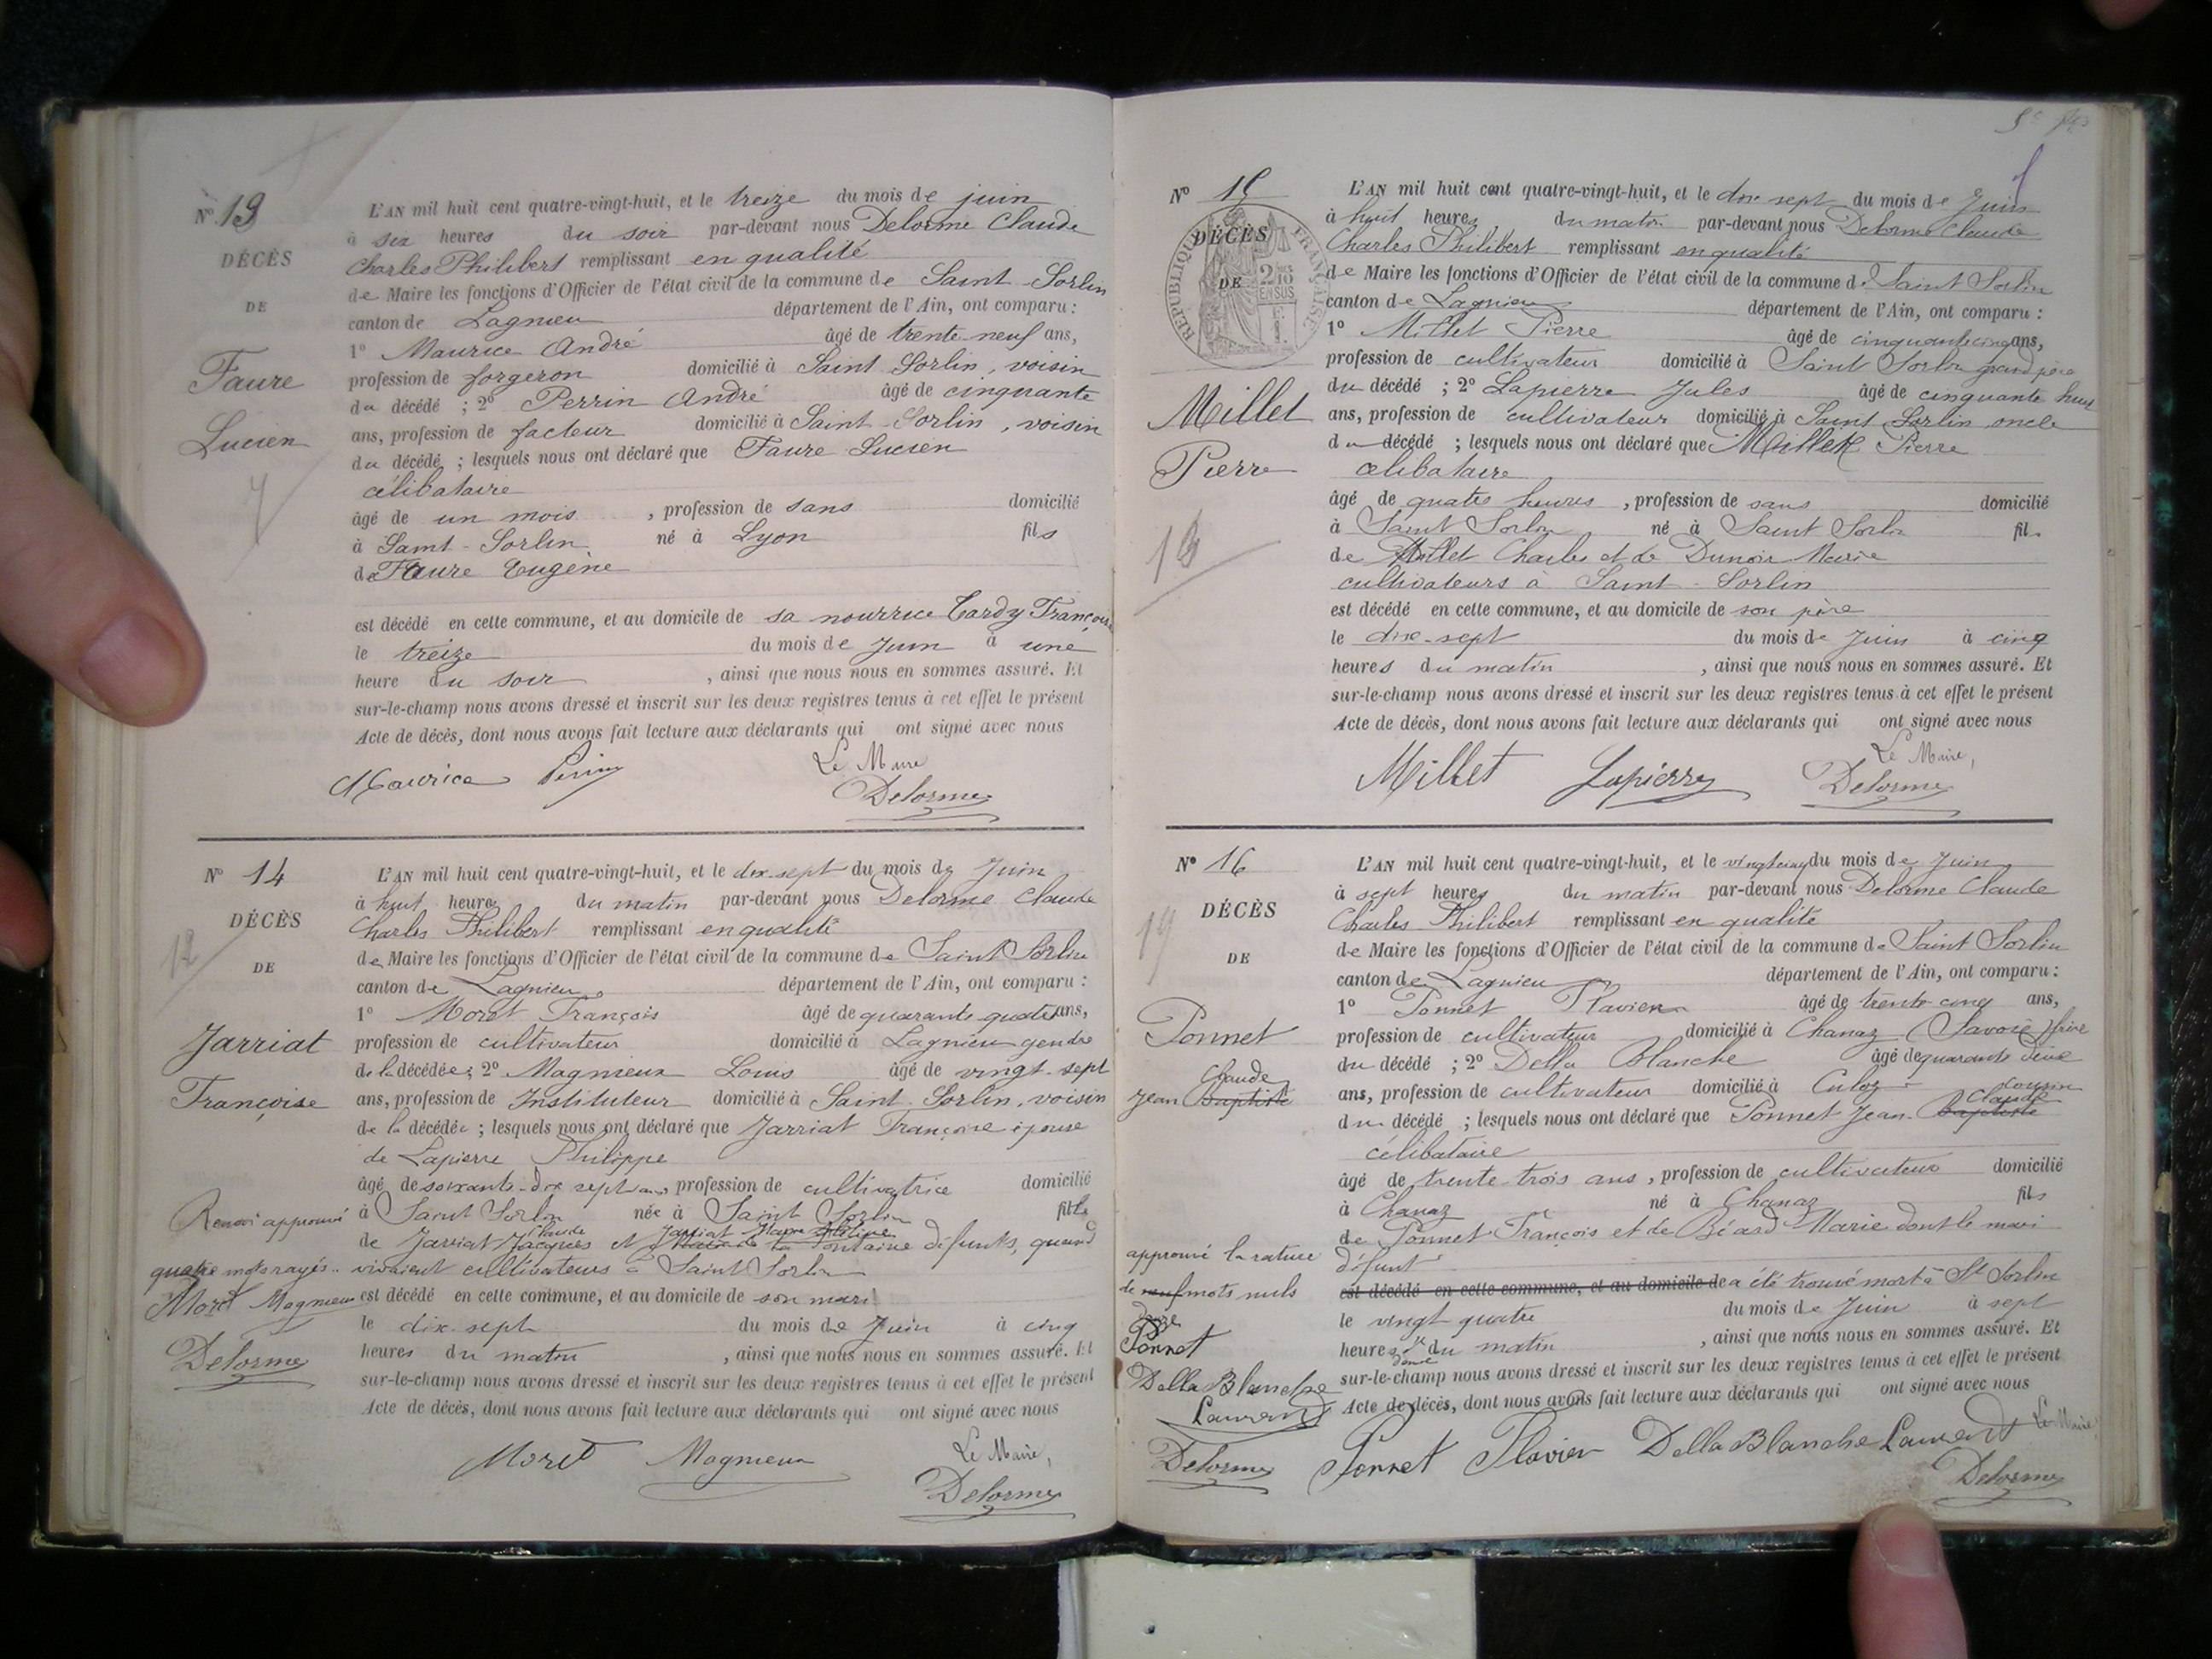 N° 13
DÉCÈS
DE
Faure
Lucien
L'AN mil huit cent quatre-vingt-huit, et le treize du mois de juin
à six heures du soir par-devant nous Delorme Claude
Charles Philibert remplissant en qualité
de Maire les fonctions d'Officier de l'état civil de la commune de Saint-Sorlin
canton de Lagnieu département de l'Ain, ont comparu :
1° Maurice André âgé de trente neuf ans,
profession de forgeron domicilié à Saint Sorlin, voisin
du décédé ; 2° Perrin André âgé de cinquante
ans, profession de facteur domicilié à Saint-Sorlin, voisin
du décédé ; lesquels nous ont déclaré que Faure Lucien
célibataire
âgé de un mois , profession de sans domicilié
à Saint-Sorlin né à Lyon fils
de Faure Eugène
est décédé en cette commune, et au domicile de sa nourrice Tardy Françoise
le treize du mois de Juin à une
heure du soir , ainsi que nous nous en sommes assuré. Et
sur-le-champ nous avons dressé et inscrit sur les deux registres tenus à cet effet le présent
Acte de décès, dont nous avons fait lecture aux déclarants qui ont signé avec nous
Maurice Perrin Le Maire
Delorme
N° 14
DÉCÈS
12
DE
Jarriat
Françoise
L'AN mil huit cent quatre-vingt-huit, et le dix-sept du mois de Juin
à huit heures du matin par-devant nous Delorme Claude
Charles Philibert remplissant en qualité
de Maire les fonctions d'Officier de l'état civil de la commune de Saint Sorlin
canton de Lagnieu département de l'Ain, ont comparu :
1° Moret François âgé de quarante quatre ans,
profession de cultivateur domicilié à Lagnieu gendre
de la décédée ; 2° Magnieux Louis âgé de vingt-sept
ans, profession de Instituteur domicilié à Saint-Sorlin, voisin
de la décédée ; lesquels nous ont déclaré que Jarriat Françoise épouse
de Lapierre Philippe
âgé de soixante-dix sept ans, profession de cultivatrice domicilié
à Saint Sorlin née à Saint Sorlin fille
Claude Jarriat Marie
de Jarriat Jacques et Fontaine défunts, quand
vivaient cultivateurs à Saint Sorlin
est décédé en cette commune, et au domicile de son mari
le dix-sept du mois de Juin à cinq
heures du matin , ainsi que nous nous en sommes assuré. Et
sur-le-champ nous avons dressé et inscrit sur les deux registres tenus à cet effet le présent
Acte de décès, dont nous avons fait lecture aux déclarants qui ont signé avec nous
Renvoi approuvé
quatre mots rayés
Moret Magnieux
Delorme
Moret Magnieux Le Maire,
Delorme
N° 15
DÉCÈS
DE
RÉPUBLIQUE FRANÇAISE
2/10 EN SUS
Millet
Pierre
L'AN mil huit cent quatre-vingt-huit, et le dix sept du mois de Juin
à huit heures du matin par-devant nous Delorme Claude
Charles Philibert remplissant en qualité
de Maire les fonctions d'Officier de l'état civil de la commune de Saint Sorlin
canton de Lagnieu département de l'Ain, ont comparu :
1° Millet Pierre âgé de cinquante cinq ans,
profession de cultivateur domicilié à Saint Sorlin grand père
du décédé ; 2° Lapierre Jules âgé de cinquante huit
ans, profession de cultivateur domicilié à Saint Sorlin oncle
du décédé ; lesquels nous ont déclaré que Millet Pierre
célibataire
âgé de quatre heures , profession de sans domicilié
à Saint Sorlin né à Saint Sorlin fils
de Millet Charles et de Dunoir Marie
cultivateurs à Saint-Sorlin
est décédé en cette commune, et au domicile de son père
le dix-sept du mois de Juin à cinq
heures du matin , ainsi que nous nous en sommes assuré. Et
sur-le-champ nous avons dressé et inscrit sur les deux registres tenus à cet effet le présent
Acte de décès, dont nous avons fait lecture aux déclarants qui ont signé avec nous
Millet Lapierre Le Maire,
Delorme
N° 16
DÉCÈS
DE
Ponnet
Claude
Jean Baptiste
L'AN mil huit cent quatre-vingt-huit, et le vingt cinq du mois de Juin
à sept heures du matin par-devant nous Delorme Claude
Charles Philibert remplissant en qualité
de Maire les fonctions d'Officier de l'état civil de la commune de Saint Sorlin
canton de Lagnieu département de l'Ain, ont comparu :
1° Ponnet Flavien âgé de trente-cinq ans,
profession de cultivateur domicilié à Chanaz (Savoie) frère
du décédé ; 2° Della Blanche âgé de quarante deux
ans, profession de cultivateur domicilié à Culoz cousin
Claude
du décédé ; lesquels nous ont déclaré que Ponnet Jean Baptiste
célibataire
âgé de trente-trois ans , profession de cultivateur domicilié
à Chanaz né à Chanaz fils
de Ponnet François et de Béard Marie dont le mari
défunt
est décédé en cette commune, et au domicile de a été trouvé mort à St Sorlin
le vingt quatre du mois de Juin à sept
heures du matin , ainsi que nous nous en sommes assuré. Et
sur-le-champ nous avons dressé et inscrit sur les deux registres tenus à cet effet le présent
Acte de décès, dont nous avons fait lecture aux déclarants qui ont signé avec nous
approuvé la rature
de neuf mots nuls
Ponnet
Della Blanche
Laurent
Delorme
Ponnet Flavien Della Blanche Laurent Le Maire
Delorme